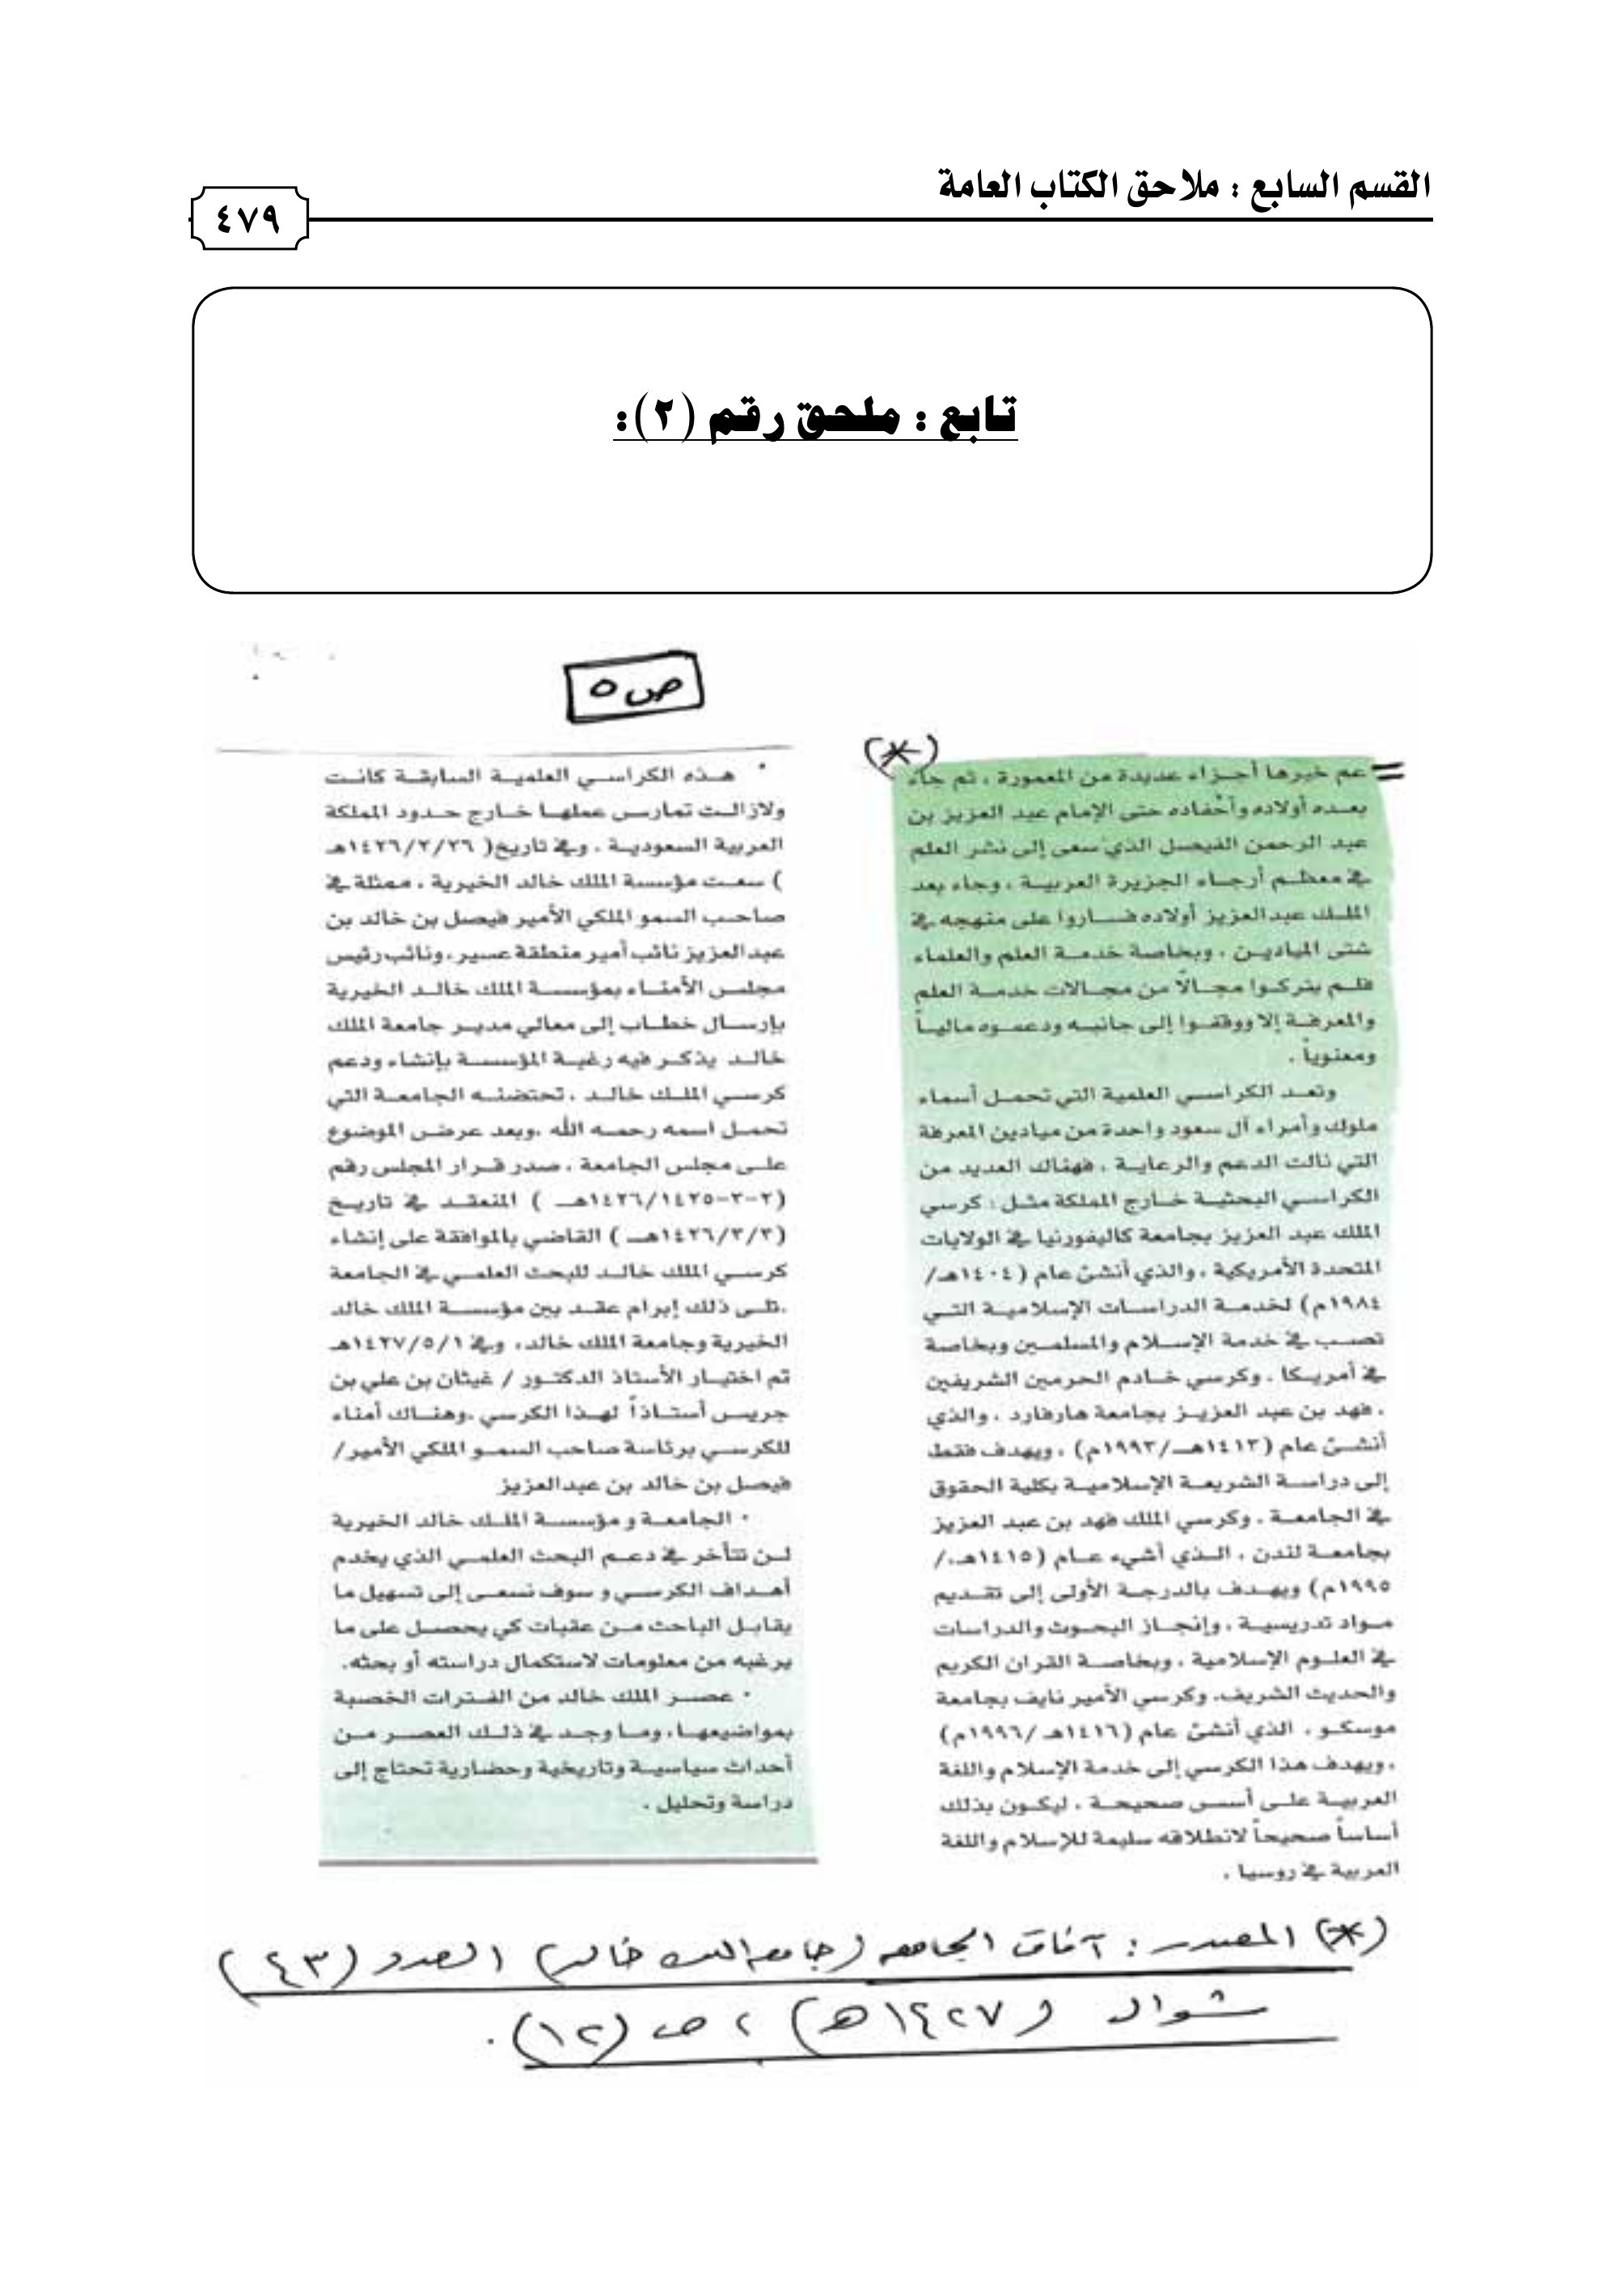 القسم السابع : ملاحق الكتاب العامة
٤٧٩
تابع : ملحق رقم (٢):
ص٥
(*)
= عم خيرها أجزاء عديدة من المعمورة ، ثم جاء
بعده أولاده وأحفاده حتى الإمام عبد العزيز بن
عبد الرحمن الفيصل الذي سعى إلى نشر العلم
في معظم أرجاء الجزيرة العربية ، وجاء بعد
الملك عبدالعزيز أولاده فساروا على منهجه في
شتى الميادين ، وبخاصة خدمة العلم والعلماء
فلم يتركوا مجالاً من مجالات خدمة العلم
والمعرفة إلا ووقفوا إلى جانبه ودعموه مالياً
ومعنوياً .
وتعد الكراسي العلمية التي تحمل أسماء
ملوك وأمراء آل سعود واحدة من ميادين المعرفة
التي نالت الدعم والرعاية ، فهناك العديد من
الكراسي البحثية خارج المملكة مثل : كرسي
الملك عبد العزيز بجامعة كاليفورنيا في الولايات
المتحدة الأمريكية ، والذي أنشئ عام (١٤٠٤هـ/
١٩٨٤م) لخدمة الدراسات الإسلامية التي
تصب في خدمة الإسلام والمسلمين وبخاصة
في أمريكا ، وكرسي خادم الحرمين الشريفين
، فهد بن عبد العزيز بجامعة هارفارد ، والذي
أنشئ عام (١٤١٣هـ/١٩٩٣م) ، ويهدف فقط
إلى دراسة الشريعة الإسلامية بكلية الحقوق
في الجامعة ، وكرسي الملك فهد بن عبد العزيز
بجامعة لندن ، الذي أشيء عام (١٤١٥هـ/
١٩٩٥م) ويهدف بالدرجة الأولى إلى تقديم
مواد تدريسية ، وإنجاز البحوث والدراسات
في العلوم الإسلامية ، وبخاصة القران الكريم
والحديث الشريف، وكرسي الأمير نايف بجامعة
موسكو ، الذي أنشئ عام (١٤١٦هـ/١٩٩٦م)
، ويهدف هذا الكرسي إلى خدمة الإسلام واللغة
العربية على أسس صحيحة ، ليكون بذلك
أساساً صحيحاً لانطلاقه سليمة للإسلام واللغة
العربية في روسيا .
• هذه الكراسي العلمية السابقة كانت
ولازالت تمارس عملها خارج حدود المملكة
العربية السعودية ، وفي تاريخ( ١٤٢٦/٢/٢٦هـ
) سعت مؤسسة الملك خالد الخيرية ، ممثلة في
صاحب السمو الملكي الأمير فيصل بن خالد بن
عبدالعزيز نائب أمير منطقة عسير، ونائب رئيس
مجلس الأمناء بمؤسسة الملك خالد الخيرية
بإرسال خطاب إلى معالي مدير جامعة الملك
خالد يذكر فيه رغبة المؤسسة بإنشاء ودعم
كرسي الملك خالد ، تحتضنه الجامعة التي
تحمل اسمه رحمه الله ،وبعد عرض الموضوع
على مجلس الجامعة ، صدر قرار المجلس رقم
(٢-٣-١٤٢٦/١٤٢٥هـ ) المنعقد في تاريخ
(١٤٢٦/٣/٣هـ ) القاضي بالموافقة على إنشاء
كرسي الملك خالد للبحث العلمي في الجامعة
،تلى ذلك إبرام عقد بين مؤسسة الملك خالد
الخيرية وجامعة الملك خالد، وفي ١٤٢٧/٥/١هـ
تم اختيار الأستاذ الدكتور / غيثان بن علي بن
جريس أستاذاً لهذا الكرسي ،وهناك أمناء
للكرسي برئاسة صاحب السمو الملكي الأمير/
فيصل بن خالد بن عبدالعزيز
• الجامعة و مؤسسة الملك خالد الخيرية
لن تتأخر في دعم البحث العلمي الذي يخدم
أهداف الكرسي و سوف نسعى إلى تسهيل ما
يقابل الباحث من عقبات كي يحصل على ما
يرغبه من معلومات لاستكمال دراسته أو بحثه.
• عصر الملك خالد من الفترات الخصبة
بمواضيعها، وما وجد في ذلك العصر من
أحداث سياسية وتاريخية وحضارية تحتاج إلى
دراسة وتحليل .
(*) المصدر : آفاق الجامعه (جامعه الملك خالد) العدد (٤٣)
شوال (١٤٢٧هـ) ، ص (١٢) .